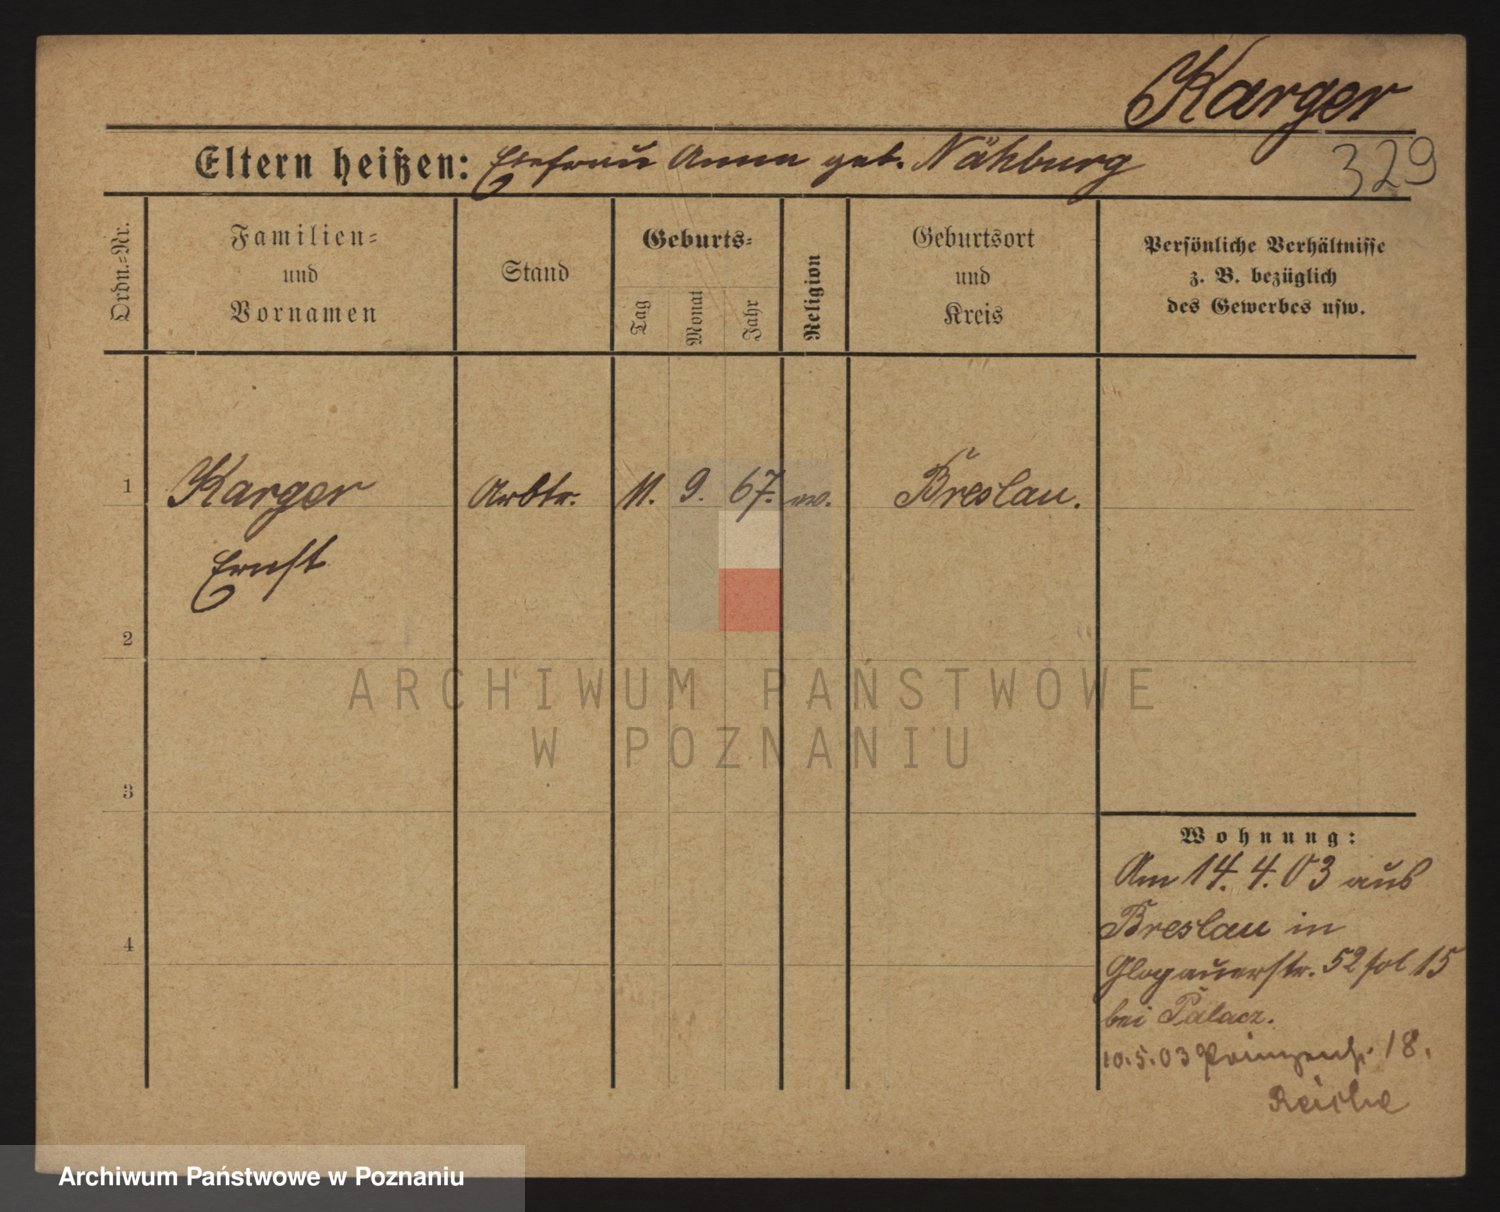 Karger
329
Eltern heißen: Ehefrau Anna geb. Nähburg
Ordn.-Nr.
Familien-
und
Vornamen
Stand
Geburts-
Tag
Monat
Jahr
Religion
Geburtsort
und
Kreis
Persönliche Verhältnisse
z. B. bezüglich
des Gewerbes usw.
1
Karger
Arbtr.
11.
9.
67.
ev.
Breslau.
Ernst
2
ARCHIWUM PAŃSTWOWE
W POZNANIU
3
4
Wohnung:
Am 14. 4. 03 aus
Breslau in
Glogauerstr. 52 fol 15
bei Palacz.
10.5.03 Prinzenstr. 18.
Reiche
Archiwum Państwowe w Poznaniu